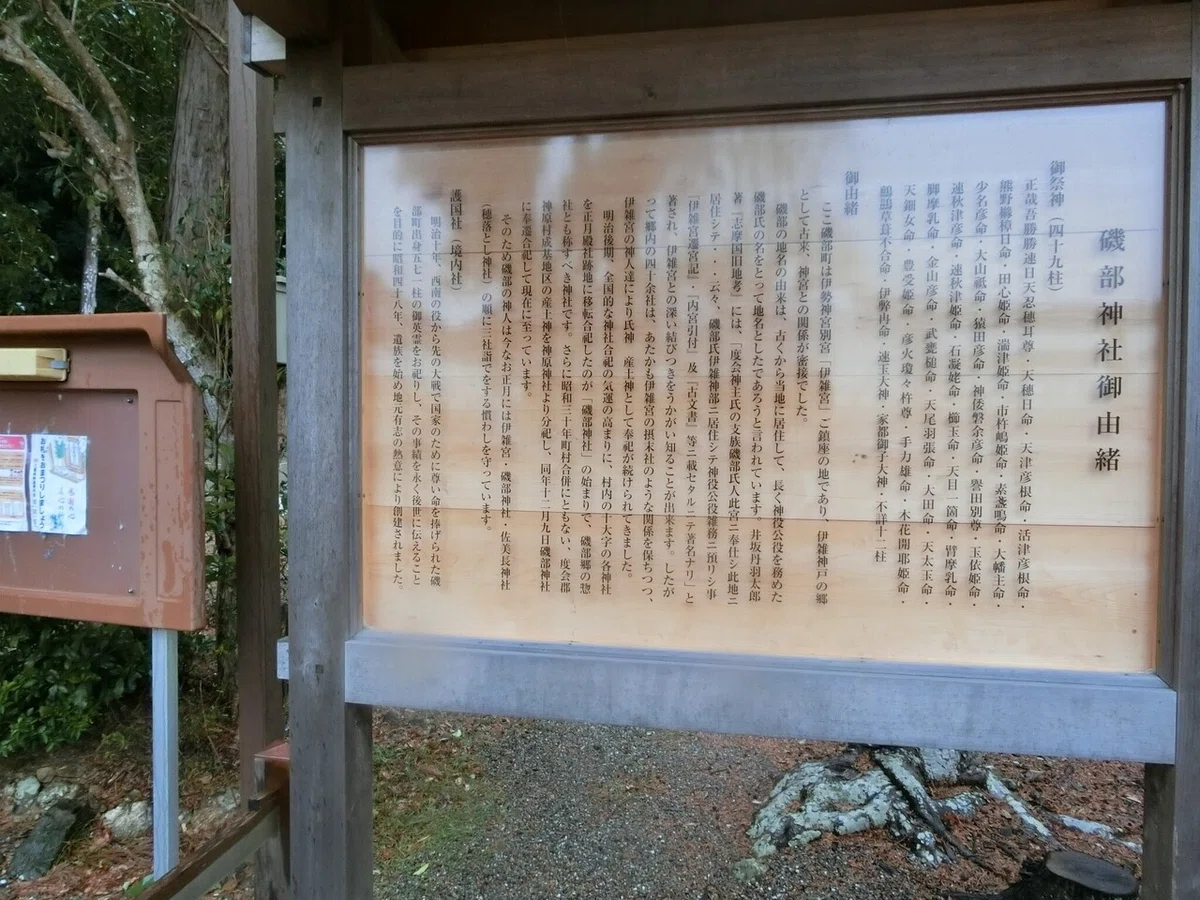 磯部神社御由緒
御祭神（四十九柱）
正哉吾勝勝速日天忍穂耳尊・天穂日命・天津彦根命・活津彦根命・
熊野櫲樟日命・田心姫命・湍津姫命・市杵嶋姫命・素盞嗚命・大幡主命・
少名彦命・大山祇命・猿田彦命・神倭磐余彦命・譽田別尊・玉依姫命・
速秋津彦命・速秋津姫命・石凝姥命・櫛玉命・天目一箇命・臂摩乳命・
脚摩乳命・金山彦命・武甕槌命・天尾羽張命・大田命・天太玉命・
天鈿女命・豊受姫命・彦火瓊々杵尊・手力雄命・木花開耶姫命・
鸕鷀草葺不合命・伊弉冉命・速玉大神・家都御子大神・不詳十二柱
御由緒
ここ磯部町は伊勢神宮別宮「伊雑宮」ご鎮座の地であり、伊雑神戸の郷
として古来、神宮との関係が密接でした。
磯部の地名の由来は、古くから当地に居住して、長く神役公役を務めた
磯部氏の名をとって地名としたであろうと言われています。井坂丹羽太郎
著『志摩国旧地考』には、「度会神主氏の支族磯部氏人此宮ニ奉仕シ此地ニ
居住シテ・・・云々、磯部氏伊雑神部ニ居住シテ神役公役雑務ニ預リシ事
『伊雑宮遷宮記』・『内宮引付』及『古文書』等ニ載セタルニテ著名ナリ」と
著され、伊雑宮との深い結びつきをうかがい知ることが出来ます。したが
って郷内の四十余社は、あたかも伊雑宮の摂末社のような関係を保ちつつ、
伊雑宮の神人達により氏神　産土神として奉祀が続けられてきました。
明治後期、全国的な神社合祀の気運の高まりに、村内の十大字の各神社
を正月殿社跡地に移転合祀したのが「磯部神社」の始まりで、磯部郷の惣
社とも称すべき神社です。さらに昭和三十年町村合併にともない、度会郡
神原村成基地区の産土神を神原神社より分祀し、同年十二月九日磯部神社
に奉遷合祀して現在に至っています。
そのため磯部の神人は今なお正月には伊雑宮・磯部神社・佐美長神社
（穂落とし神社）の順に三社詣でをする慣わしを守っています。
護国社（境内社）
明治十年、西南の役から先の大戦で国家のために尊い命を捧げられた磯
部町出身五七一柱の御英霊をお祀りし、その事績を永く後世に伝えること
を目的に昭和四十八年、遺族を始め地元有志の熱意により創建されました。
お札をおまつりしましょう